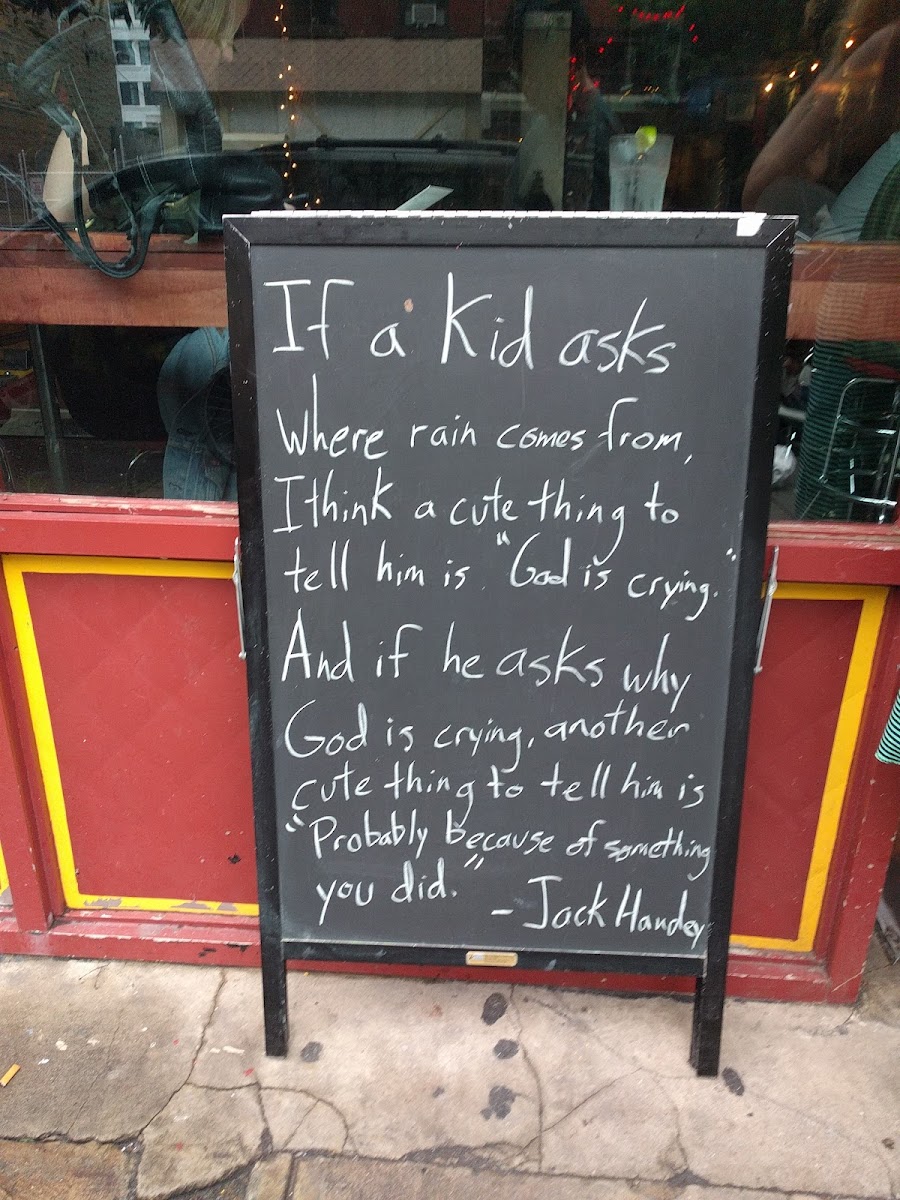 If a Kid asks
Where rain comes from,
I think a cute thing to
tell him is "God is crying."
And if he asks why
God is crying, another
cute thing to tell him is
"Probably because of something
you did." - Jack Handey